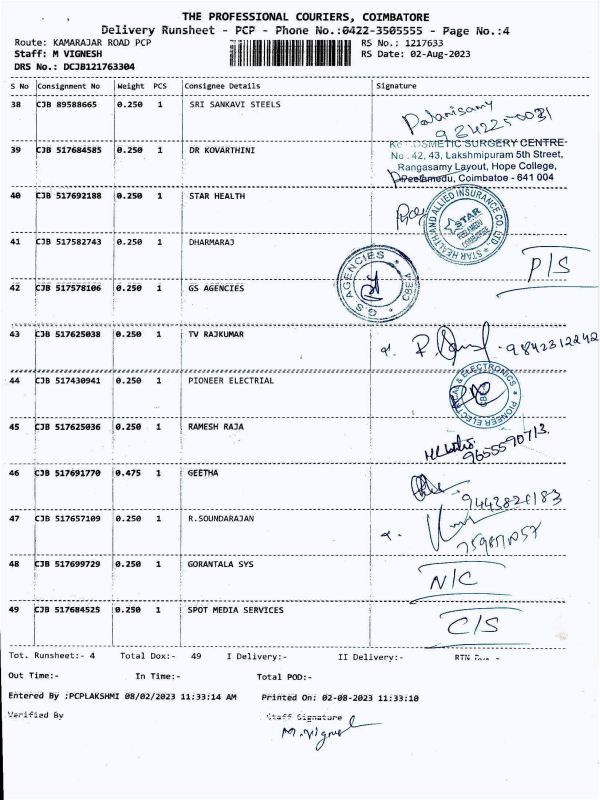 THE PROFESSIONAL COURIERS, COIMBATORE
Delivery Runsheet - PCP - Phone No.:0422-3505555 - Page No.:4
Route: KAMARAJAR ROAD PCP RS No.: 1217633
Staff: M VIGNESH RS Date: 02-Aug-2023
DRS No.: DCJB121763304
S No Consignment No Weight PCS Consignee Details Signature
38 CJB 89588665 0.250 1 SRI SANKAVI STEELS
Palanisamy
9842250031
39 CJB 517684585 0.250 1 DR KOVARTHINI
COSMETIC SURGERY CENTRE
No : 42, 43, Lakshmipuram 5th Street,
Rangasamy Layout, Hope College,
Peelamedu, Coimbatoe - 641 004
40 CJB 517692188 0.250 1 STAR HEALTH
STAR HEALTH AND ALLIED INSURANCE CO. LTD.
STAR
41 CJB 517582743 0.250 1 DHARMARAJ
P/S
42 CJB 517578106 0.250 1 GS AGENCIES
G.S AGENCIES
43 CJB 517625038 0.250 1 TV RAJKUMAR
9842312242
44 CJB 517430941 0.250 1 PIONEER ELECTRIAL
PIONEER ELECTRICAL & ELECTRONICS
CBE
45 CJB 517625036 0.250 1 RAMESH RAJA
9655590713
46 CJB 517691770 0.475 1 GEETHA
9443821183
47 CJB 517657109 0.250 1 R.SOUNDARAJAN
48 CJB 517699729 0.250 1 GORANTALA SYS
N/C
49 CJB 517684525 0.250 1 SPOT MEDIA SERVICES
C/S
Tot. Runsheet:- 4 Total Dox:- 49 I Delivery:- II Delivery:- RTN
Out Time:- In Time:- Total POD:-
Entered By :PCPLAKSHMI 08/02/2023 11:33:14 AM Printed On: 02-08-2023 11:33:10
Verified By Staff Signature
M.Vignesh